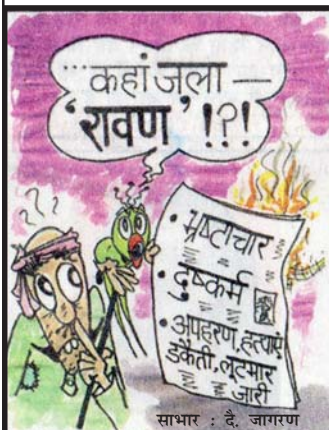 ...कहां जला —
'रावण' !?!
• भ्रष्टाचार
• दुष्कर्म
• अपहरण, हत्याएं
डकैती, लूटमार
जारी
साभार : दै. जागरण